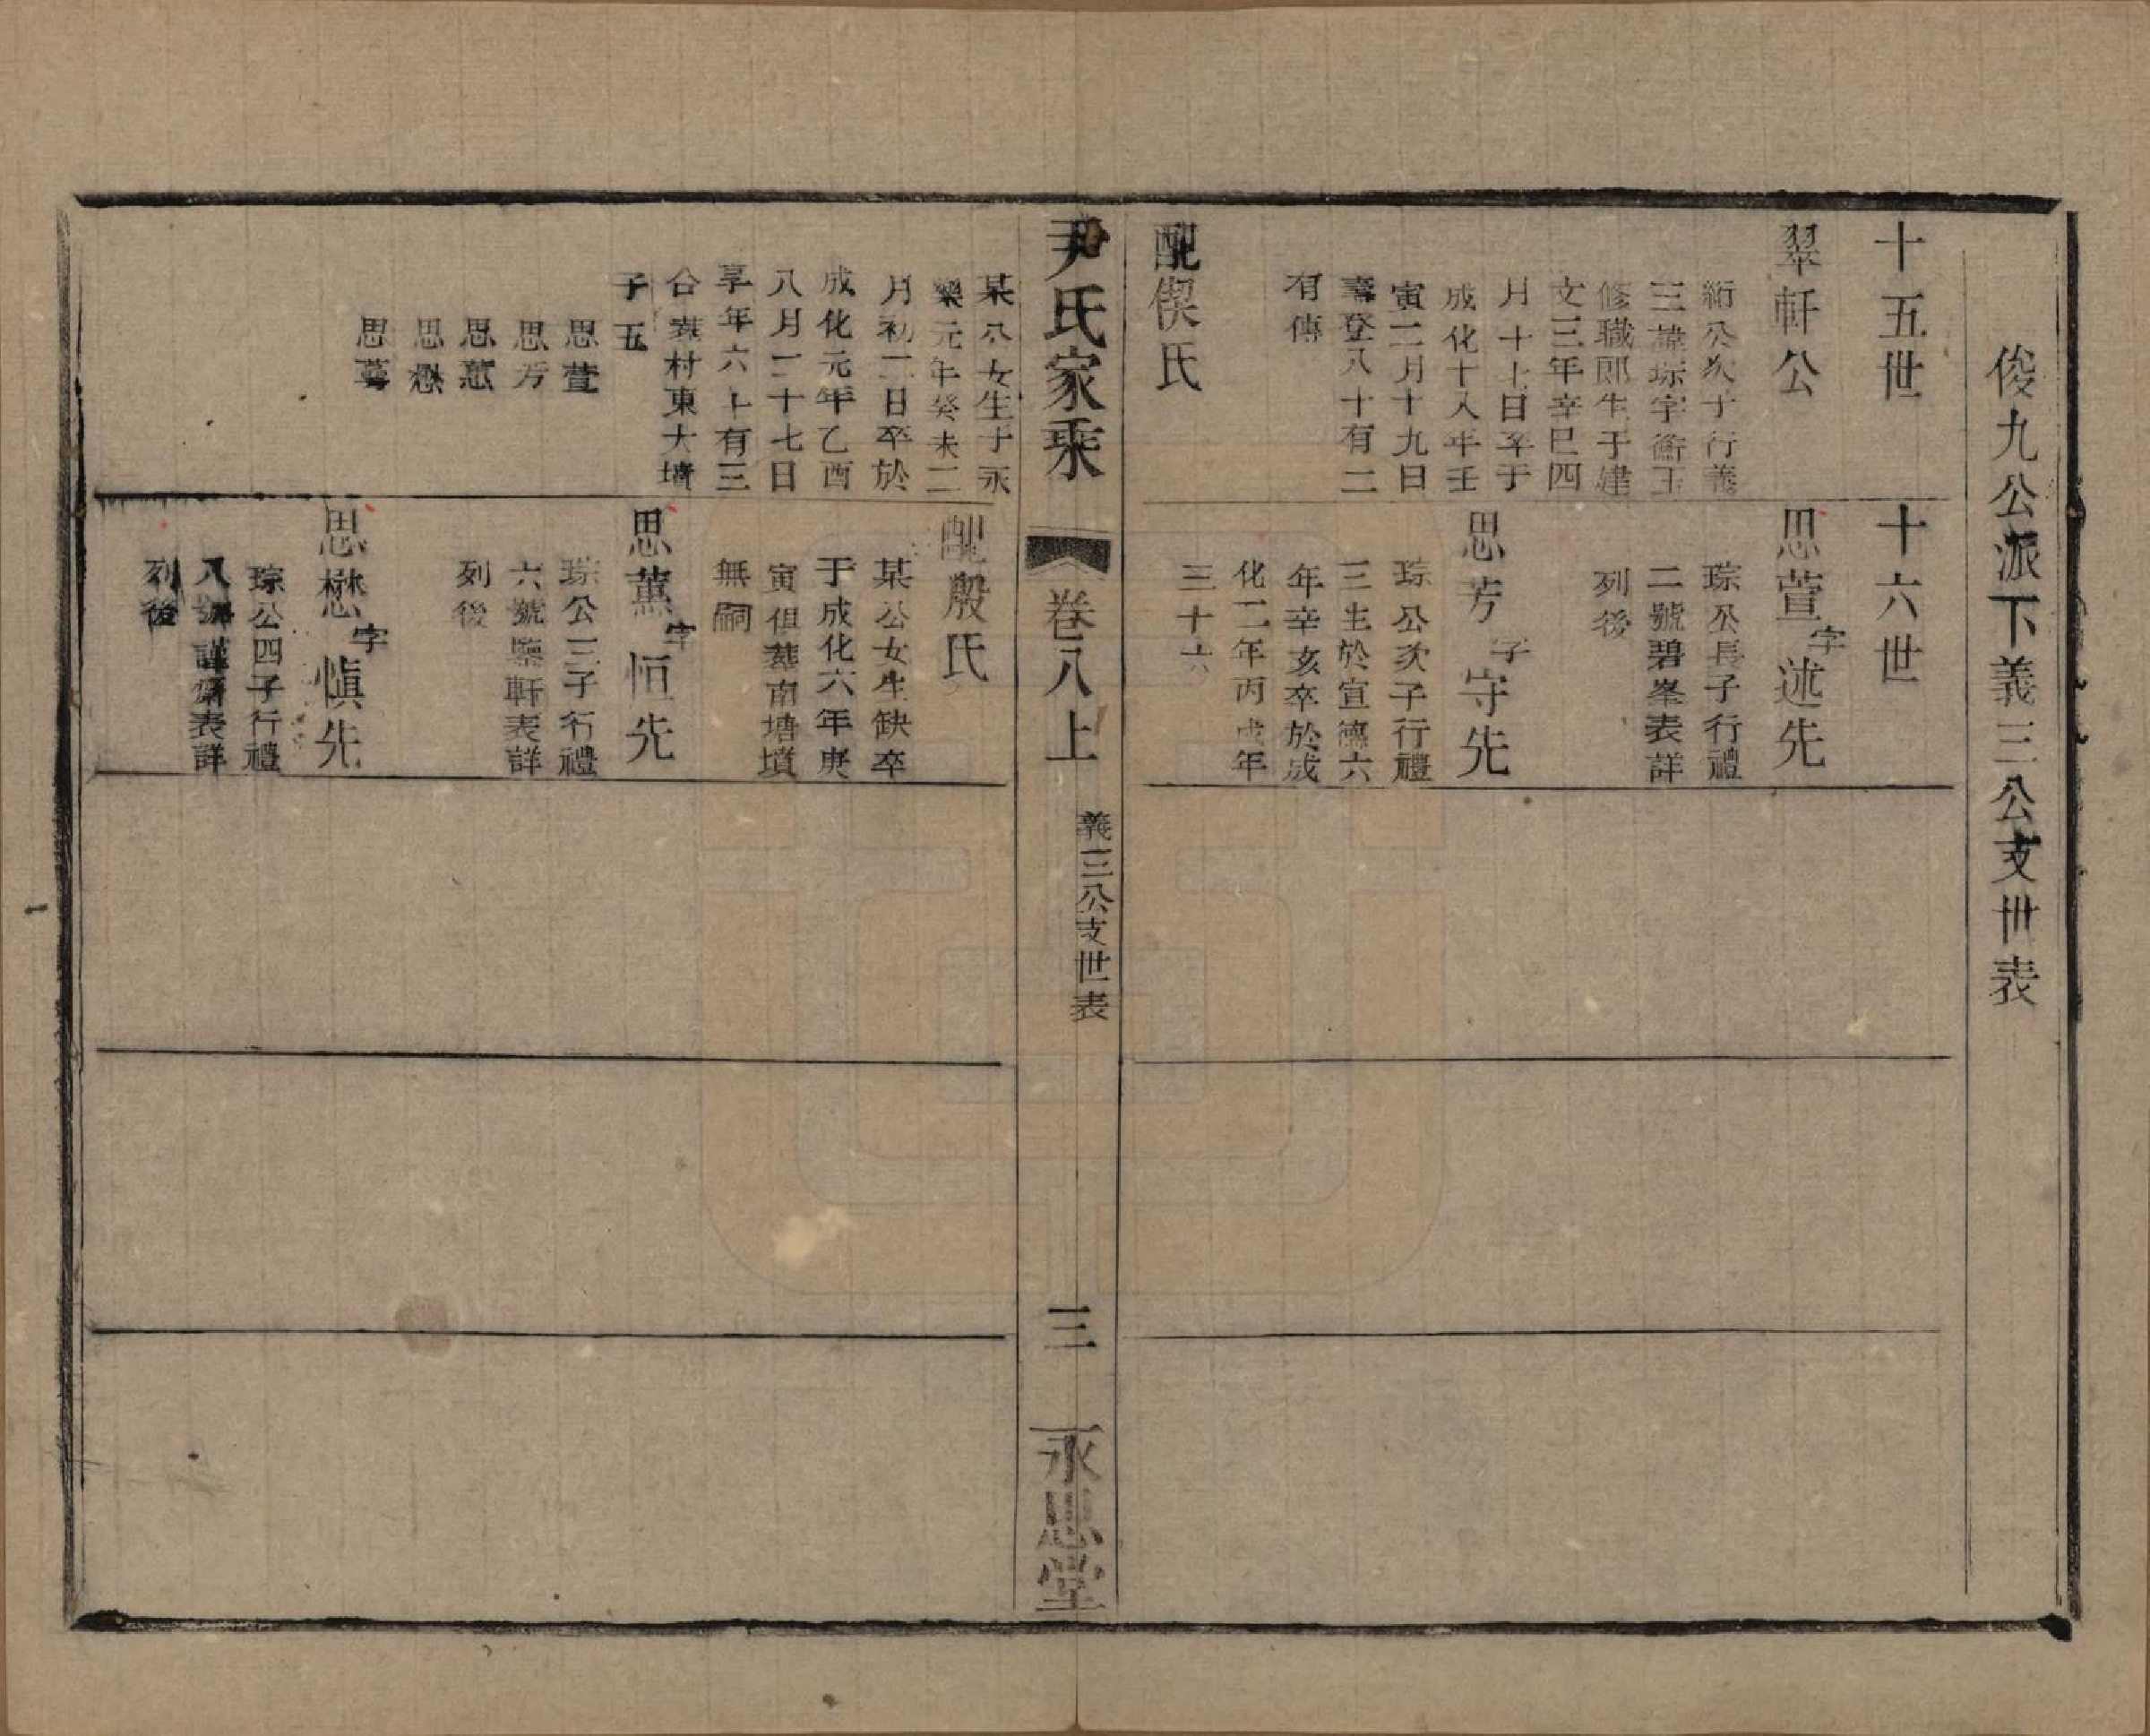 俊九公派下義三公支世表
十五世
翠軒公
絎公次子行義
三諱琮字衡玉
修職郎生于建
文三年辛巳四
月十七日卒于
成化十八年壬
寅二月十九日
壽登八十有二
有傳
配偰氏
十六世
思萱字述先
琮公長子行禮
二號碧峯表詳
列後
思芳字守先
琮公次子行禮
三生於宣德六
年辛亥卒於成
化二年丙戌年
三十六
尹氏家乘
卷八上
義三公支世表
三
永思堂
某公女生于永
樂元年癸未二
月初二日卒於
成化元年乙酉
八月二十七日
享年六十有三
合葬村東大墳
子五
思萱
思芳
思薰
思懋
思
配殷氏
某公女生缺卒
于成化六年庚
寅俱葬南塘墳
無嗣
思薰字恒先
琮公三子行禮
六號鑒軒表詳
列後
思懋字愼先
琮公四子行禮
八號謹齋表詳
列後